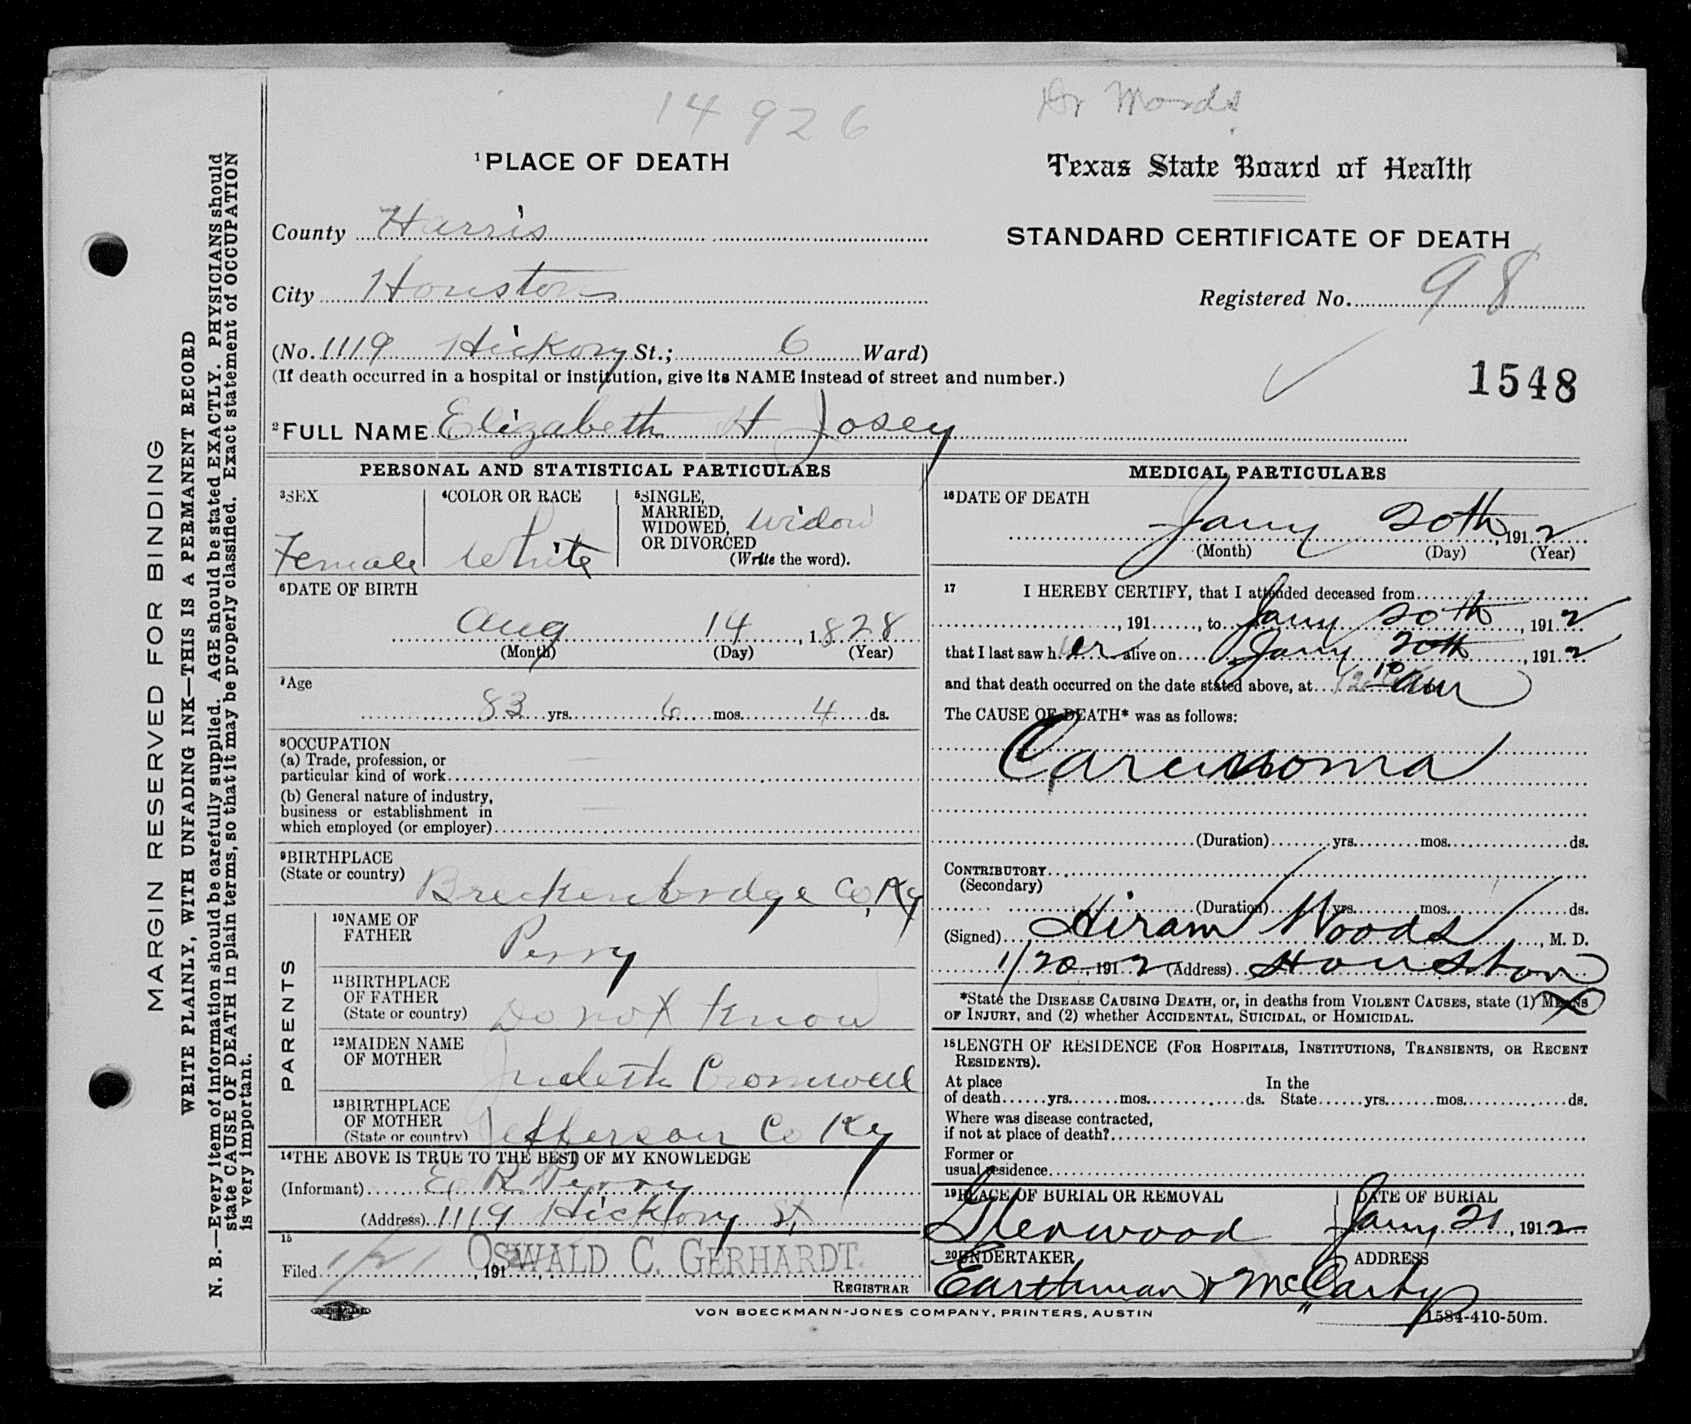 14926
Dr Woods
¹PLACE OF DEATH
Texas State Board of Health
County Harris
STANDARD CERTIFICATE OF DEATH
City Houston
Registered No. 98
(No. 1119 Hickory St.; 6 Ward)
(If death occurred in a hospital or institution, give its NAME instead of street and number.)
1548
²FULL NAME Elizabeth H Josey
PERSONAL AND STATISTICAL PARTICULARS
³SEX
Female
⁴COLOR OR RACE
White
⁵SINGLE,
MARRIED,
WIDOWED,
OR DIVORCED
widow
(Write the word).
⁶DATE OF BIRTH
Aug 14, 1828
(Month) (Day) (Year)
⁷Age
83 yrs. 6 mos. 4 ds.
⁸OCCUPATION
(a) Trade, profession, or
particular kind of work
(b) General nature of industry,
business or establishment in
which employed (or employer)
⁹BIRTHPLACE
(State or country) Breckenbridge Co, Ky
PARENTS
¹⁰NAME OF
FATHER
Perry
¹¹BIRTHPLACE
OF FATHER
(State or country) Do not Know
¹²MAIDEN NAME
OF MOTHER
Judeth Cromwell
¹³BIRTHPLACE
OF MOTHER
(State or country) Jefferson Co Ky
¹⁴THE ABOVE IS TRUE TO THE BEST OF MY KNOWLEDGE
(Informant) E R Perry
(Address) 1119 Hickory St
15
Filed 1/21, 191 OSWALD C. GERHARDT.
REGISTRAR
MEDICAL PARTICULARS
¹⁶DATE OF DEATH
Jany 20th, 1912
(Month) (Day) (Year)
17 I HEREBY CERTIFY, that I attended deceased from
, 191, to Jany 20th, 1912
that I last saw her alive on Jany 20th, 1912
and that death occurred on the date stated above, at am
The CAUSE OF DEATH* was as follows:
Carcinoma
(Duration) yrs. mos. ds.
CONTRIBUTORY
(Secondary)
(Duration) yrs. mos. ds.
(Signed) Hiram Woods, M. D.
1/20 1912 (Address) Houston
*State the DISEASE CAUSING DEATH, or, in deaths from VIOLENT CAUSES, state (1) MEANS
OF INJURY, and (2) whether ACCIDENTAL, SUICIDAL, or HOMICIDAL.
¹⁸LENGTH OF RESIDENCE (FOR HOSPITALS, INSTITUTIONS, TRANSIENTS, OR RECENT
RESIDENTS).
At place In the
of death yrs. mos. ds. State yrs. mos. ds.
Where was disease contracted,
if not at place of death?
Former or
usual residence
¹⁹PLACE OF BURIAL OR REMOVAL
Glenwood
DATE OF BURIAL
Jany 21, 1912
²⁰UNDERTAKER
Earthman & McCarty
ADDRESS
VON BOECKMANN-JONES COMPANY, PRINTERS, AUSTIN
1584-410-50m.
MARGIN RESERVED FOR BINDING
WRITE PLAINLY, WITH UNFADING INK—THIS IS A PERMANENT RECORD
N. B.—Every item of information should be carefully supplied. AGE should be stated EXACTLY. PHYSICIANS should
state CAUSE OF DEATH in plain terms, so that it may be properly classified. Exact statement of OCCUPATION
is very important.